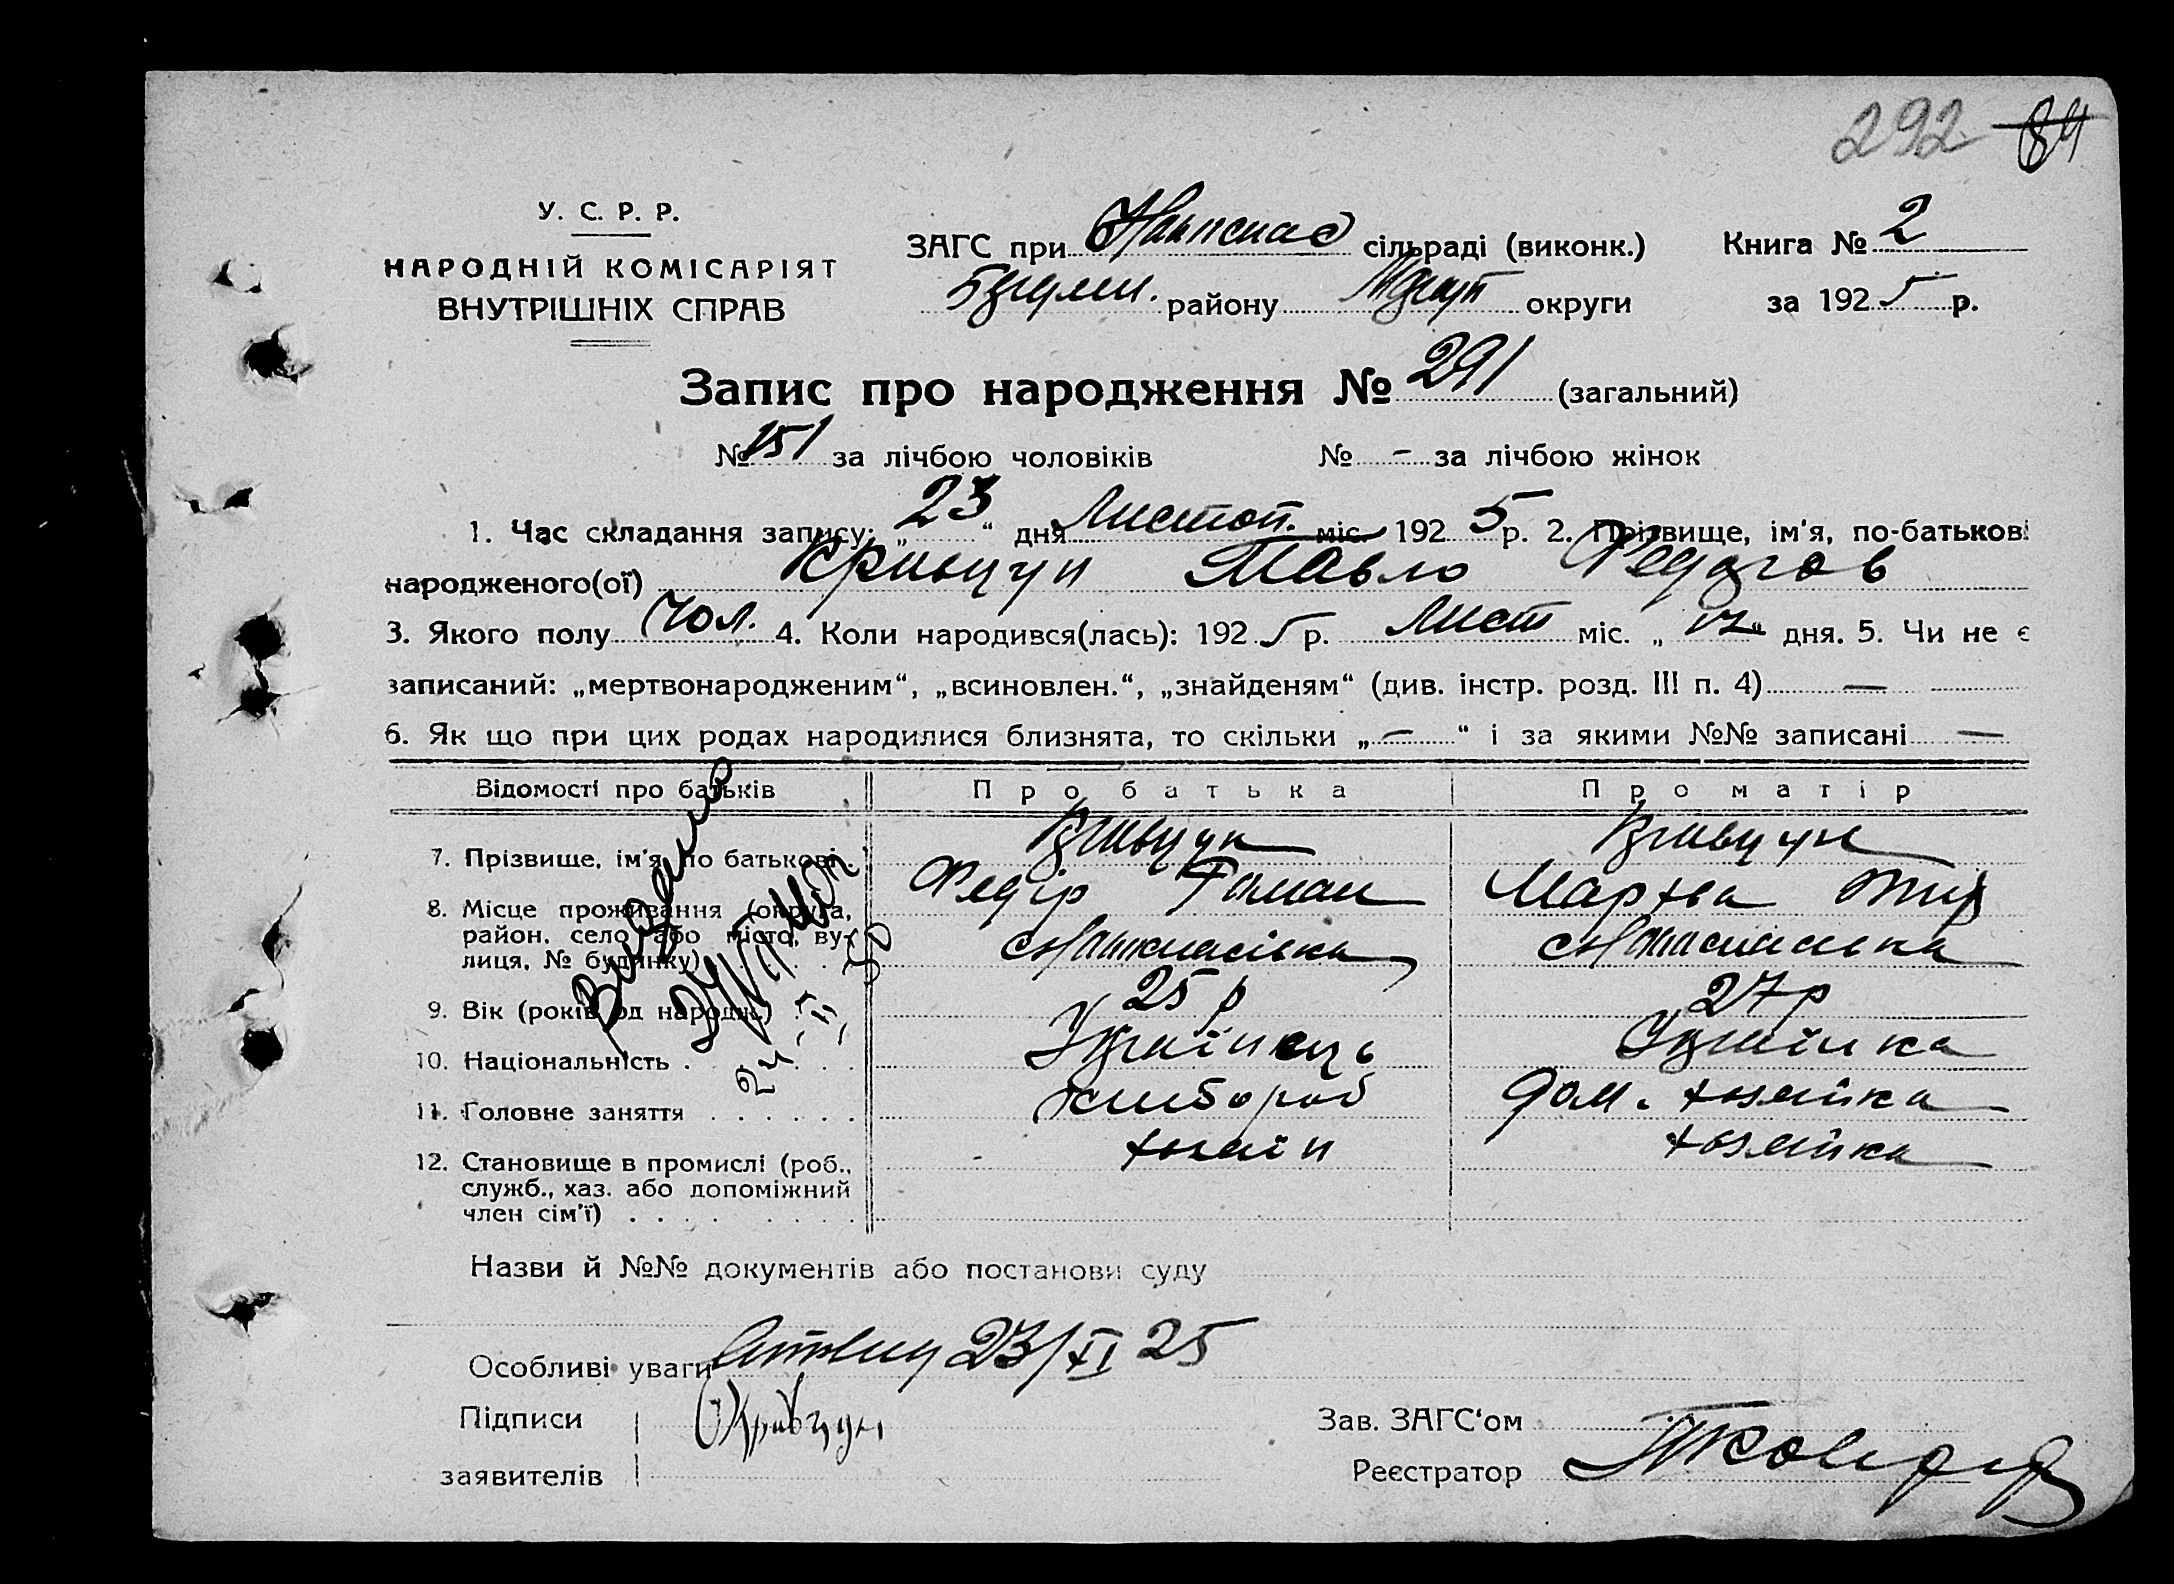 292 84
У. С. Р. Р.
НАРОДНІЙ КОМІСАРІЯТ
ВНУТРІШНІХ СПРАВ
ЗАГС при сільраді (виконк.) Книга № 2
району округи за 1925 р.
Запис про народження № 291 (загальний)
№ 151 за лічбою чоловіків № – за лічбою жінок
1. Час складання запису: „23“ дня Листоп. міс. 1925 р. 2. Прізвище, ім'я, по-батькові
народженого(ої) Кривцун Павло Федоров
3. Якого полу Чол. 4. Коли народився(лась): 1925 р. Лист міс. „17“ дня. 5. Чи не є
записаний: „мертвонародженим“, „всиновлен.“, „знайденям“ (див. інстр. розд. III п. 4) —
6. Як що при цих родах народилися близнята, то скільки „—“ і за якими №№ записані —
Відомості про батьків Про батька Про матір
7. Прізвище, ім'я, по батькові . Кривцун Кривцун
Федір Роман Марфа
8. Місце проживання (округа,
район, село або місто, ву-
лиця, № будинку)
9. Вік (років од народж.) 25 р 27 р
10. Національність . Українець Українка
11. Головне заняття . хлібороб дом. хозяйка
12. Становище в промислі (роб., хозаїн хозяйка
служб., хаз. або допоміжний
член сім'ї)
Назви й №№ документів або постанови суду
Особливі уваги 23/XI 25
Підписи Кривцун Зав. ЗАГС‘ом
заявителів Реєстратор